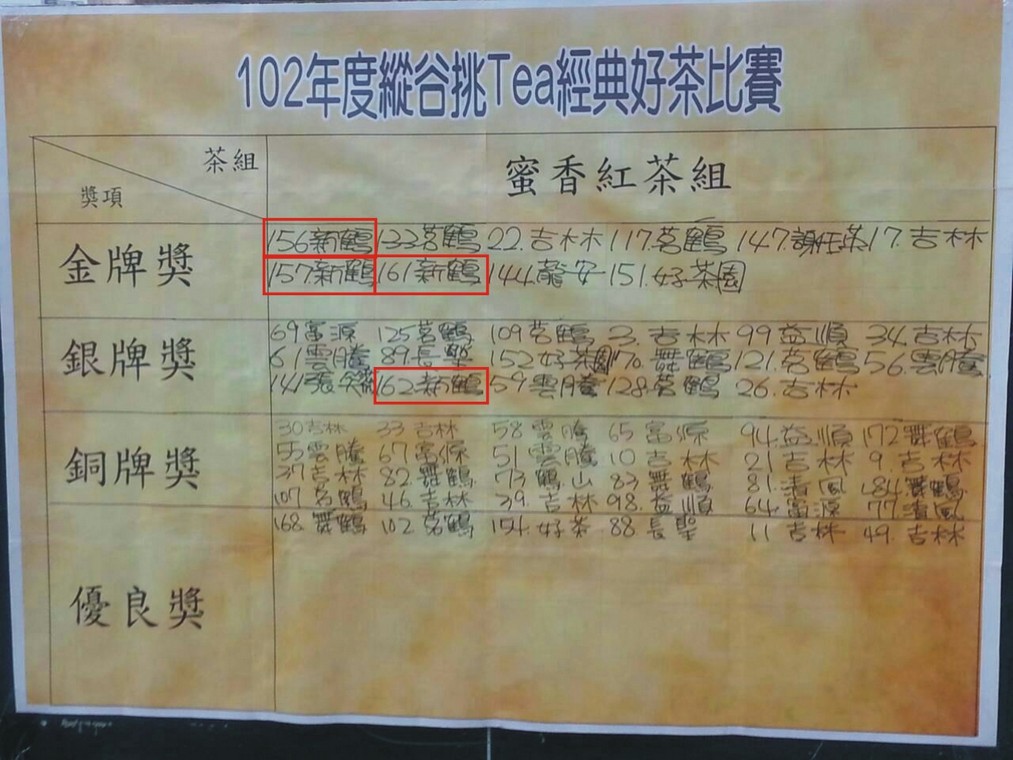 102年度縱谷挑Tea經典好茶比賽
茶組
獎項
蜜香紅茶組
金牌獎
156新鶴 133茗鶴 22.吉林 117.茗鶴 147. 17.吉林
157.新鶴 161新鶴 144.龍安 151.好茶園
銀牌獎
69富源 125茗鶴 109茗鶴 3.吉林 99益順 34.吉林
61雲騰 89長聖 152好茶園 170.舞鶴 121.茗鶴 56.雲騰
141 162.新鶴 59.雲騰 128.茗鶴 26.吉林
銅牌獎
30吉林 33吉林 58雲騰 65富源 94.益順 172舞鶴
55雲騰 67富源 51雲騰 10吉林 21吉林 9.吉林
37吉林 82舞鶴 73鶴山 83舞鶴 81.清風 184.舞鶴
107茗鶴 46.吉林 39.吉林 98.益順 64.富源 77清風
168舞鶴 102茗鶴 154.好茶 88長聖 11吉林 49.吉林
優良獎